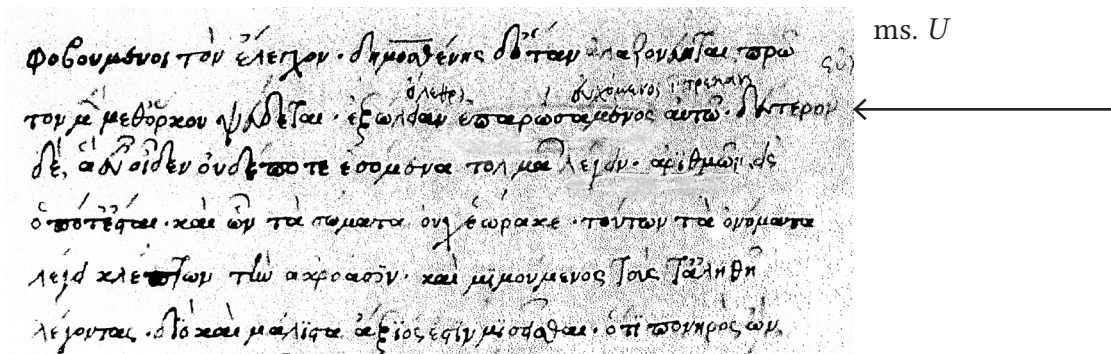 ms. U
φοβουμενοι τὸν ἔλεγχον · δημοσθένης δ' ὅταν ἀλαζονεύηται πρῶ
ὄλεθρ εὐχόμενος
τον μ μεθὅρκου ψεύδεται · ἐξώλειαν ἐπαρωσαμενος αὐτῶ · δεύτερον
δὲ, ἃ εὖ οἶδεν οὐδέποτε ἐσομενα τολμᾶ λέγειν · ἀριθμῶν εἰς
ὁπότ' ἔσται · καὶ ὧν τὰ σώματα οὐχ ἑώρακε · τούτων τὰ ὀνόματα
λέγει κλέπτων τὴν ἀκρόασϊν · καὶ μϊμούμενος τοὺς τἀληθῆ
λέγοντας · διὸ καὶ μάλιστα ἄξϊός ἐστϊν μϊσεῖσθαι · ὅτι πονηρὸς ὤν